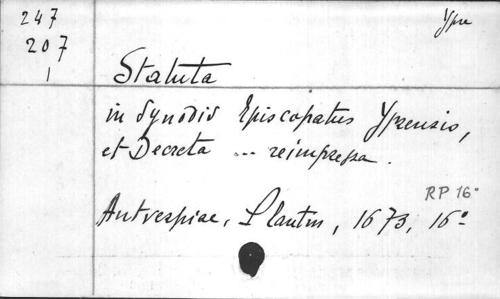 247
207
1
Ypre
Statuta
in Synodis Episcopatus Yprensis,
et Decreta ... reimpressa.
RP 16°
Antverpiae, Plantin, 1673, 16°